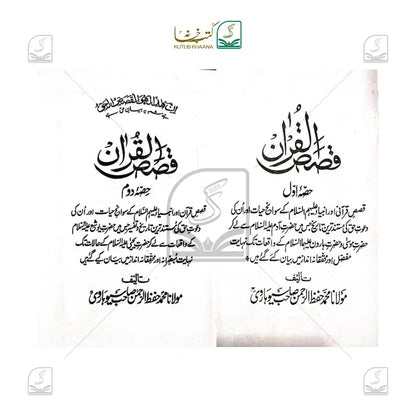 کتب خانہ
KUTUB KHAANA
قصص القرآن
حصہ اول
قصص قرآنی اور انبیاء علیہم السلام کے سوانح حیات اور ان کی
دعوت حق کی مستند ترین تاریخ جس میں حضرت آدم علیہ السلام سے لیکر
حضرت موسیٰ و حضرت ہارون علیہما السلام کے واقعات تک نہایت
مفصل اور محققانہ انداز میں بیان کئے گئے ہیں
تالیف
مولانا محمد حفظ الرحمن صاحب سیوہاروی
ان هذا لهو القصص الحق
قصص القرآن
حصہ دوم
قصص قرآنی اور انبیاء علیہم السلام کے سوانح حیات اور ان کی
دعوت حق کی مستند ترین تاریخ و تفسیر جس میں حضرت یوشع علیہ السلام
کے واقعات سے لے کر حضرت یحییٰ علیہ السلام کے حالات تک
نہایت مبصرانہ اور محققانہ انداز میں بیان کئے گئے ہیں
تالیف
مولانا محمد حفظ الرحمن صاحب سیوہاروی